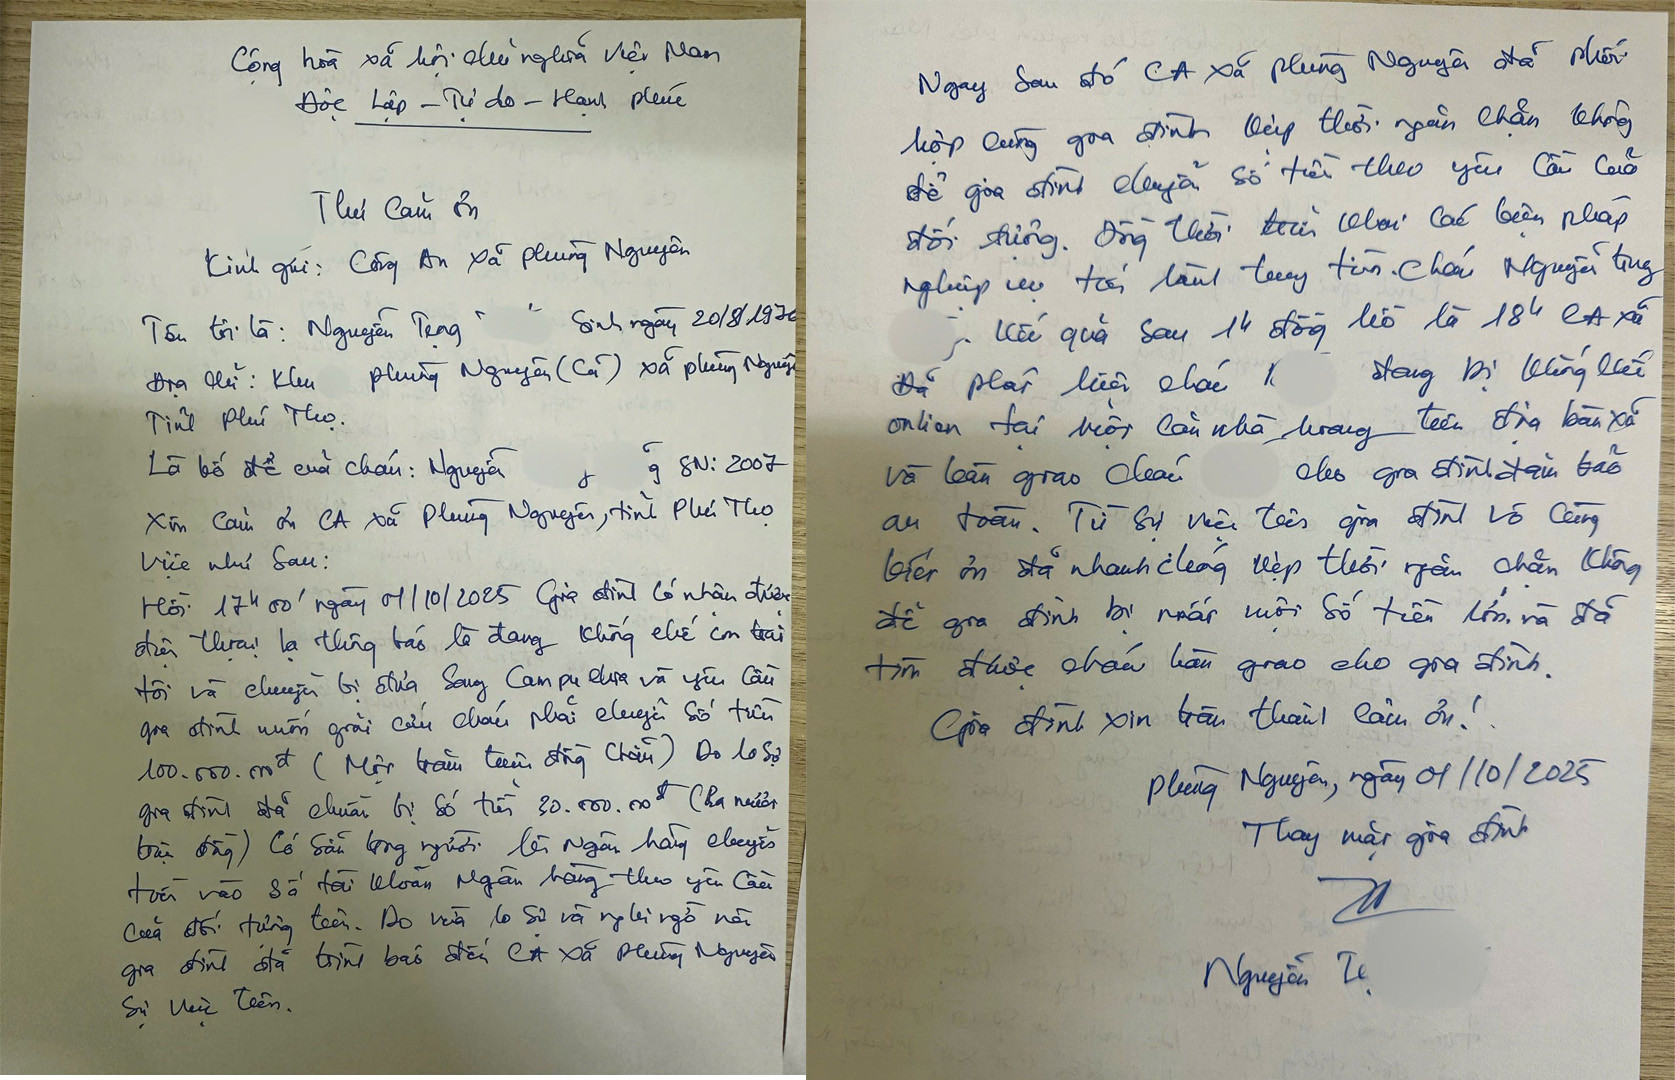 Cộng hoà xã hội chủ nghĩa Việt Nam
Độc Lập - Tự do - Hạnh phúc
Thư Cảm ơn
Kính gửi: Công An xã Phùng Nguyên
Tên tôi là: Nguyễn Trọng Sinh ngày 20/8/197
Địa chỉ: Khu Phùng Nguyên (Cũ) xã Phùng Nguyên
Tỉnh Phú Thọ.
Là bố đẻ của cháu: Nguyễn g SN: 2007
Xin Cảm ơn CA xã Phùng Nguyên, tỉnh Phú Thọ
Việc như Sau:
Hồi 17h00' ngày 01/10/2025 Gia đình có nhận được
điện thoại lạ thông báo là đang khống chế con trai
tôi và chuẩn bị đưa Sang Campuchia và yêu cầu
gia đình muốn giải cứu cháu phải chuyển Số tiền
100.000.000đ (Một trăm triệu đồng chẵn) Do lo sợ
gia đình đã chuẩn bị số tiền 30.000.000đ (Ba mươi
triệu đồng) Có Sẵn trong người lên Ngân hàng chuyển
tiền vào số tài khoản Ngân hàng theo yêu Cầu
Của đối tượng trên. Do vừa lo sợ và nghi ngờ nên
gia đình đã trình báo đến CA xã Phùng Nguyên
Sự việc trên.
Ngay Sau đó CA xã Phùng Nguyên đã phối
hợp cùng gia đình kịp thời ngăn chặn không
để gia đình chuyển số tiền theo yêu cầu của
đối tượng. Đồng thời triển khai các biện pháp
nghiệp vụ tiến hành truy tìm cháu Nguyễn Trọng
. Kết quả sau 1h đồng hồ là 18h CA xã
Đã phát hiện cháu đang bị khống chế
onlien tại một căn nhà hoang trên địa bàn xã
và bàn giao cháu cho gia đình đảm bảo
an toàn. Từ Sự việc trên gia đình vô Cùng
biết ơn đã nhanh chóng kịp thời ngăn chặn không
để gia đình bị mất một số tiền lớn và đã
tìm được cháu bàn giao cho gia đình.
Gia đình xin trân thành cảm ơn!
Phùng Nguyên, ngày 01/10/2025
Thay mặt gia đình
Nguyễn